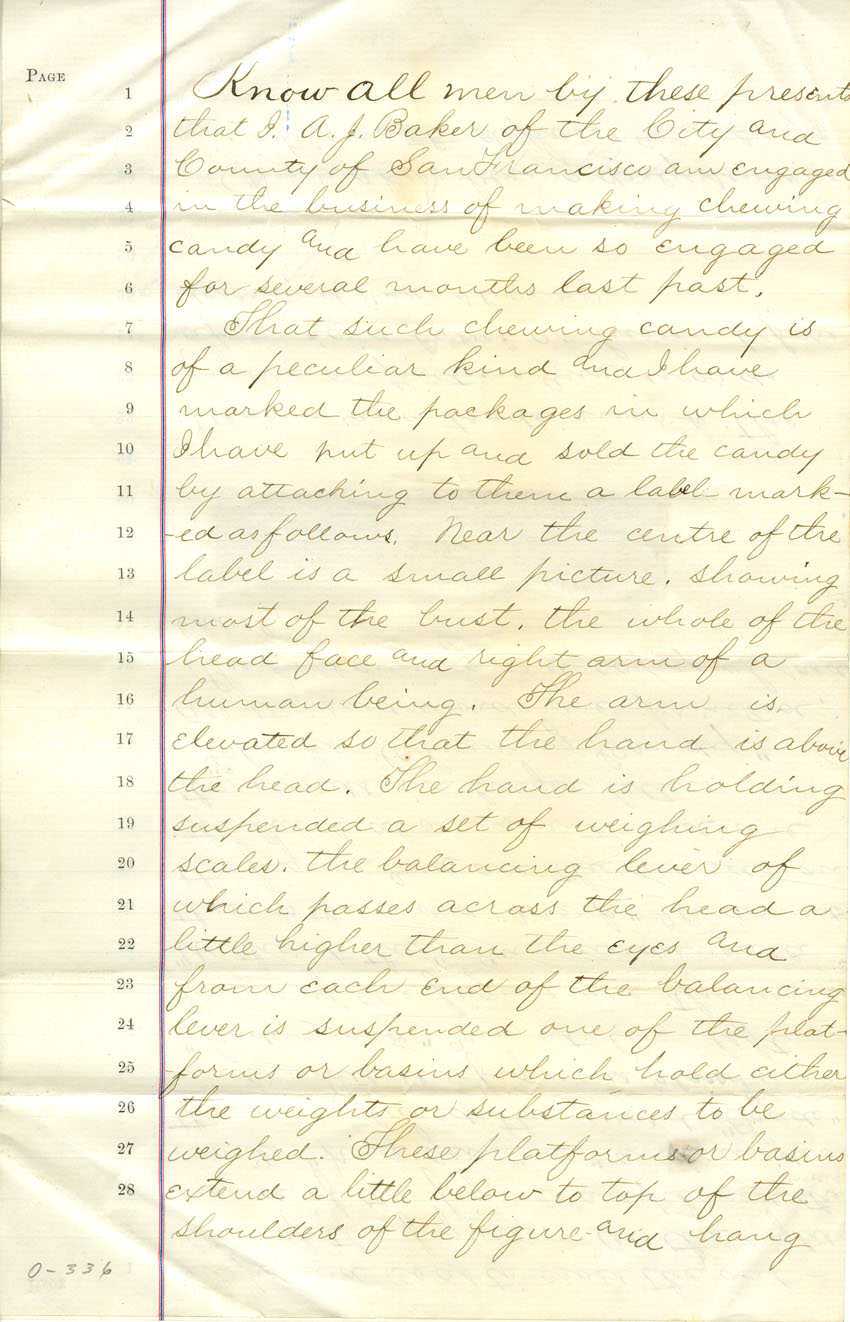 PAGE
1 Know all men by these presents
2 that I. A. J. Baker of the City and
3 County of San Francisco am engaged
4 in the business of making chewing
5 candy and have been so engaged
6 for several months last past.
7 That such chewing candy is
8 of a peculiar kind and I have
9 marked the packages in which
10 I have put up and sold the candy
11 by attaching to them a label mark-
12 -ed as follows. Near the centre of the
13 label is a small picture. showing
14 most of the bust. the whole of the
15 head face and right arm of a
16 human being. The arm is
17 elevated so that the hand is above
18 the head. The hand is holding
19 suspended a set of weighing
20 scales. the balancing lever of
21 which passes across the head a
22 little higher than the eyes and
23 from each end of the balancing
24 lever is suspended one of the plat-
25 -forms or basins which hold either
26 the weights or substances to be
27 weighed. These platforms or basins
28 extend a little below to top of the
shoulders of the figure and hang
0-336